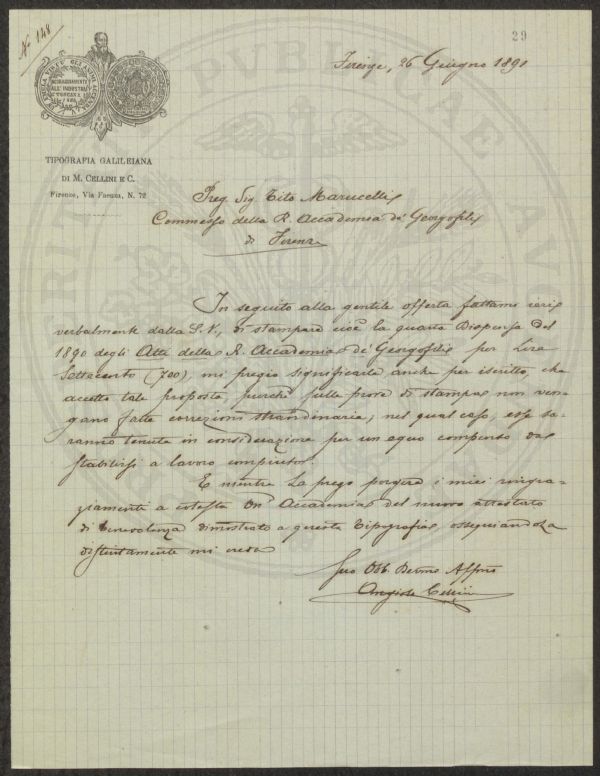 N. 148
29
Firenze, 26 Giugno 1891
INCORAGGIAMENTO
ALL'INDUSTRIA
TOSCANA
TIPOGRAFIA GALILEIANA
DI M. CELLINI E C.
Firenze, Via Faenza, N. 72
Preg. Sig. Tito Marucelli
Commesso della R. Accademia de' Georgofili
di Firenze
In seguito alla gentile offerta fattami ieri
verbalmente dalla S. V., di stampare cioè la quarta Dispensa del
1890 degli Atti della R. Accademia de' Georgofili per Lire
Settecento (700), mi pregio significarle anche per iscritto, che
accetto tale proposta, purchè sulle prove di stampa non ven-
gano fatte correzioni straordinarie; nel qual caso, esse sa-
ranno tenute in considerazione per un equo compenso da
stabilirsi a lavoro compiuto.
E mentre La prego porgere i miei ringra-
ziamenti a cotesta On. Accademia del nuovo attestato
di benevolenza dimostrato a questa Tipografia, ossequiandola
distintamente mi creda
Suo Obb. Devmo Affmo
Cellini
PUBLICAE